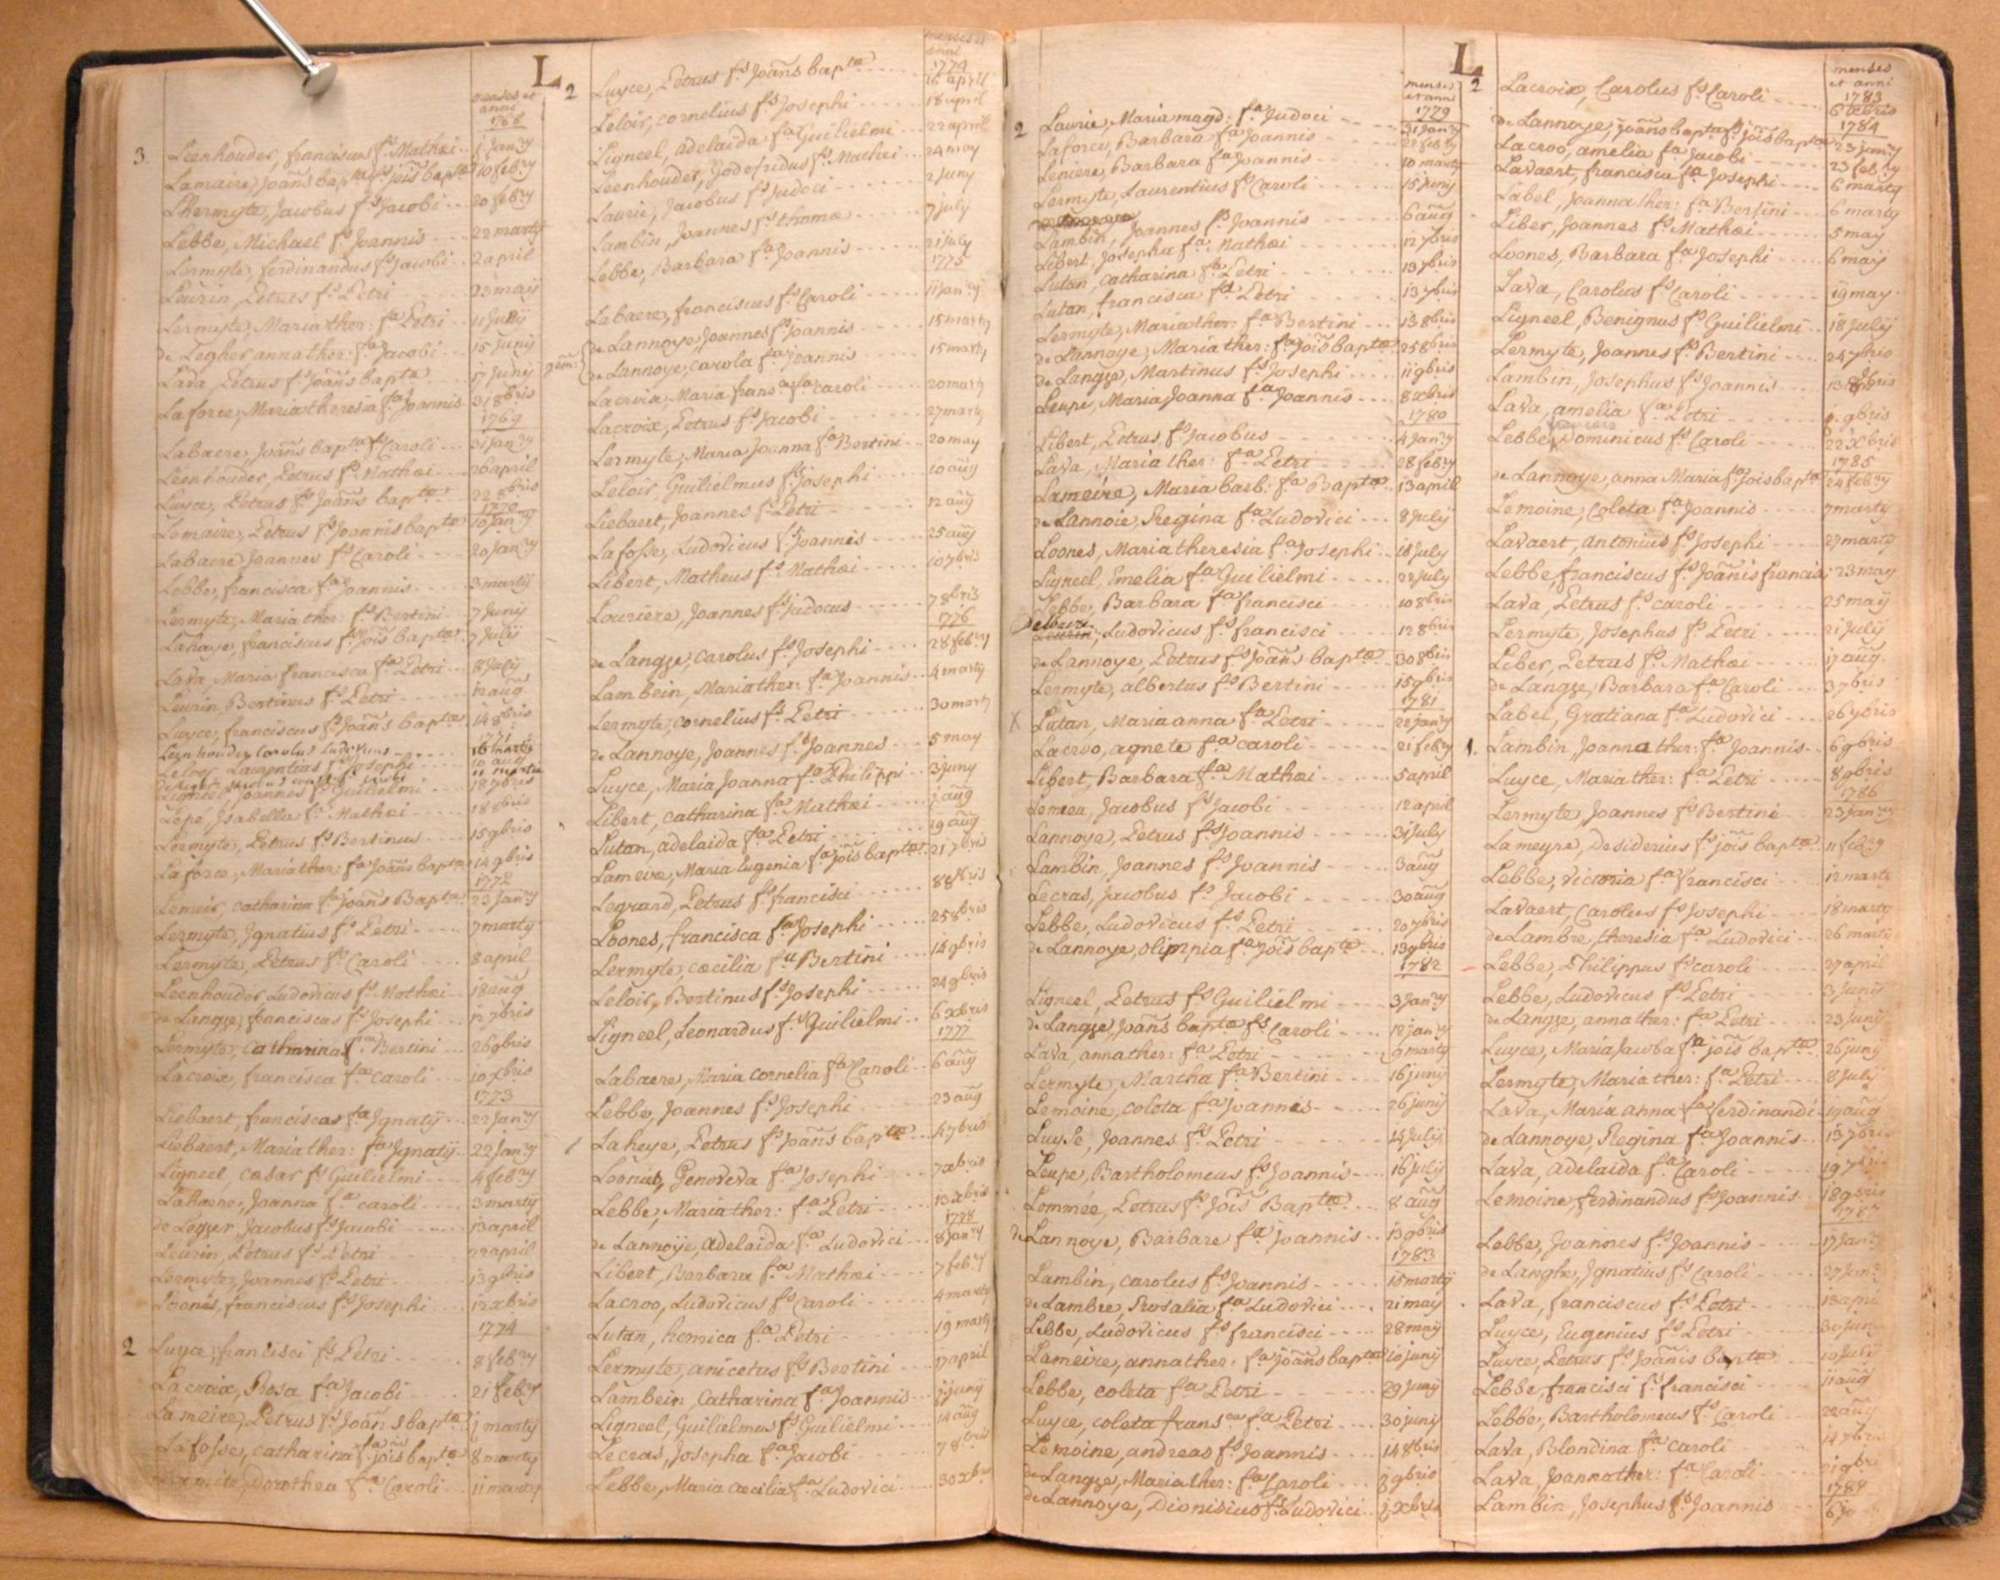 L
menses et
anni
1768
3 Leenhouder, franciscus fs Mathæi 1 Janry
Lamaire, Joañs bapta fs jois bapta 10 febry
Lhermyte, Jacobus fs Jacobi 20 febry
Lebbe, Michael fs Joannis 22 martij
Lermyte, ferdinandus fs Jacobi 2 april
Leurin, Petrus fs Petri 23 maij
Lermyte, Maria ther: fa Petri 11 Junij
de Legher anna ther: fa Jacobi 15 Junij
Lava, Petrus fs Joañs bapta 17 Juny
Laforce, Maria theresia fa Joannis 31 8bris
1769
Labaere, Joañs bapta fs Caroli 31 Janry
Leenhouder, Petrus fs Mathæi 26 april
Luyce, Petrus fs Joañs baptæ 22 8bris
1770
Lemaire, Petrus fs Joannis baptæ 10 Janry
Labaere Joannes fs Caroli 20 Janry
Lebbe, francisca fa Joannis 3 martij
Lermyte, Maria ther: fa Bertini 7 Juny
Lahaye, franciscus fs Jois baptæ 7 Julij
Lava, Maria francisca fa Petri 8 July
Leurin, Bertinus fs Petri 12 aug
Luyce, franciscus fs Joañs baptæ 14 8bris
1771
Leenhouder Carolus Ludovicus 16 marty
Leloir Laurentius fs Josephi 10 aug
Ligneel Joannes fs Guilielmi 18 7bris
Lepe, Isabella fa Mathæi 18 8bris
Lermyte, Petrus fs Bertinus 15 9bris
Laforce, Maria ther: fa Joañs baptæ 14 9bris
1772
Lemeir, catharina fa Joañs Baptæ 23 Janry
Lermyte, Ignatius fs Petri 7 marty
Lermyte, Petrus fs Caroli 8 april
Leenhouder, Ludovicus fs Mathæi 18 aug
de Langze, franciscus fs Josephi 12 7bris
Lermyte, Catharina fa Bertini 26 9bris
Lacroix, francisca fa caroli 10 xbris
1773
Liebaert, franciscas fa Ignatij 22 Janry
Liebaert, Maria ther: fa Ignatij 22 Janry
Ligneel, cæsar fs Guilielmi 4 febry
Joanna fa caroli 3 martij
de Legzer, Jacobus fs Jacobi 13 april
Leurin, Petrus fs Petri 22 april
Lermyte, Joannes fs Petri 13 9bris
Loones, franciscus fs Josephi 12 xbris
1774
2 Luyce, francisci fs Petri 8 febry
Lacroix, Rosa fa Jacobi 21 febry
Lameire, Petrus fs Joañs baptæ 1 marty
Lafosse, catharina fa jois baptæ 8 marty
Dorothea fa Caroli 11 marty
menses et
anni
1774
2 Luyce, Petrus fs Joañs baptæ 16 april
Leloir, cornelius fs Josephi 18 april
Ligneel, adelaida fa Guilielmi 22 april
Leenhouder, Godefridus fs Mathæi 24 may
Laurie, Jacobus fs Judoci 2 Juny
Lambin, Joannes fs thomæ 7 july
Lebbe, Barbara fa Joannis 21 july
1775
Labaere, franciscus fs Caroli 11 Janry
de Lannoye, Joannes fs Joannis 15 marty
gem: de Lannoye, carola fa Joannis 15 marty
Lacroix, Maria fransca fa caroli 20 marty
Lacroix, Petrus fs Jacobi 27 marty
Lermyte, Maria Joanna fa Bertini 20 may
Leloir Guilielmus fs Josephi 10 aug
Liebaert, Joannes fs Petri 12 aug
Lafosse, Ludovicus fs Joannis 25 aug
Libert, Matheus fs Mathæi 10 7bris
Louriere, Joannes fs judocus 7 8bris
1776
de Langze, carolus fs Josephi 28 febry
Lambein, Maria ther: fa Joannis 4 marty
Lermyte, cornelius fs Petri 30 marty
de Lannoye, Joannes fs Joannes 5 may
Luyce, Maria Joanna fa Philippi 3 juny
Libert, catharina fa Mathæi 1 aug
Lutan, adelaida fa Petri 19 aug
Lameire, Maria Eugenia fa jois baptæ 21 7bris
Legrand, Petrus fs francisci 8 8bris
Loones, francisca fa Josephi 25 8bris
Lermyte, cæcilia fa Bertini 14 9bris
Leloir, Bertinus fs Josephi 24 9bris
Ligneel, Leonardus fs Guilielmi 6 xbris
1777
Labaere, Maria cornelia fa Caroli 6 aug
Lebbe, Joannes fs Josephi 23 aug
Laheye, Petrus fs Joañs baptæ 4 7bris
Genoveva fa Josephi 7 xbris
Lebbe, Maria ther: fa Petri 13 xbris
1778
de Lannoÿe, adelaida fa Ludovici 8 Janry
Libert, Barbara fa Mathæi 7 febry
Lacroo, Ludovicus fs Caroli 4 marty
Lutan, hemica fa Petri 19 marty
Lermyte, anicetus fs Bertini 17 april
Lambein Catharina fa Joannis juny
Ligneel, Guilielmus fs Guilielmi 14 aug
Lecras, Josepha fa Jacobi 7 8bris
Lebbe, Maria cæcilia fa Ludovici 30 xbris
L
menses
et anni
1779
2 Laurie, Maria magd: fa Judoci 31 Janry
Laforce, Barbara fa Joannis 21 febry
Leniere, Barbara fa Joannis 10 marty
Lermyte, Laurentius fs Caroli 15 Juny
Lambin, Joannes fs Joannis 6 aug
Libert, Josepha fa Mathæi 12 7bris
Lutan, catharina fa Petri 13 7bris
Lutan, francisca fa Petri 13 7bris
Lermyte, Maria ther: fa Bertini 13 8bris
de Lannoye, Maria ther: fa jois baptæ 25 8bris
de Langze, Martinus fs Josephi 11 9bris
Leupe, Maria Joanna fa Joannis 8 xbris
1780
Libert, Petrus fs Jacobus 4 Janry
Lava, Maria ther: fa Petri 28 febry
Lameire, Maria barb: fa Baptæ 13 april
de Lannoie, Regina fa Ludovici 8 july
Loones, Maria theresia fa Josephi 18 July
Ligneel, Emelia fa Guilielmi 22 july
Lebbe, Barbara fa francisci 10 8bris
Deleurin, Ludovicus fs francisci 12 8bris
de Lannoye, Petrus fs Joañs baptæ 30 8bris
Lermyte, albertus fs Bertini 15 9bris
1781
X Lutan, Maria anna fa Petri 22 janry
Lacroo, agnete fa caroli 21 febry
Libert, Barbara fa Mathæi 5 april
Lemeu, Jacobus fs Jacobi 12 april
Lannoye, Petrus fs Joannis 31 july
Lambin, Joannes fs Joannis 3 aug
Lecras, Jacobus fs Jacobi 30 aug
Lebbe, Ludovicus fs Petri 20 7bris
de Lannoye, olimpia fa jois baptæ 13 9bris
1782
Ligneel, Petrus fs Guilielmi 3 Janry
de Langze, Joañs baptæ fs Caroli 12 janry
Lava, anna ther: fa Petri 9 marty
Lermyte, Martha fa Bertini 16 juny
Lemoine, coleta fa Joannes 26 juny
Luyse, Joannes fs Petri 14 July
Leupe, Bartholomeus fs Joannis 16 july
Lommée, Petrus fs Jois Baptæ 8 aug
de Lannoye, Barbare fa Joannis 13 9bris
1783
Lambin, carolus fs Joannis 15 martij
de Lambre, Rosalia fa Ludovici 21 may
Lebbe, Ludovicus fs francisci 28 may
Lameire, anna ther: fa Joañs baptæ 10 junij
Lebbe, coleta fa Petri 29 juny
Luyce, coleta fransca fa Petri 30 juny
Lemoine, andreas fs Joannis 14 8bris
de Langze, Maria ther: fa Caroli 3 9bris
de Lannoye, Dionisius fs Ludovici 1 xbris
menses
et anni
1783
2 Lacroix, Carolus fs Caroli 6 xbris
1784
de Lannoye, joañs bapta fs jois baptæ 23 janry
Lacroo, amelia fa Jacobi 23 febry
Lavaert, francisca fa Josephi 6 marty
Label, Joanna ther: fa Bertini 6 marty
Liber, Joannes fs Mathæi 5 may
Loones, Barbara fa Josephi 6 may
Lava, Carolus fs Caroli 19 may
Ligneel, Benignus fs Guilielmi 18 july
Lermyte, Joannes fs Bertini 24 7bris
Lambin, Josephus fs Joannis 13 8bris
Lava, amelia fa Petri 9bris
Lebbe, Dominicus fs Caroli 22 xbris
1785
de Lannoye, anna Maria fa Jois baptæ 24 febry
Lemoine, Coleta fa Joannis 7 marty
Lavaert, antonius fs Josephi 27 marty
Lebbe, franciscus fs Joañis francisci 23 may
Lava, Petrus fs caroli 25 may
Lermyte, Josephus fs Petri 21 july
Liber, Petrus fs Mathæi 17 aug
de Langze, Barbara fa Caroli 3 7bris
Label, Gratiana fa Ludovici 26 7bris
1. Lambin, Joanna ther: fa Joannis 6 9bris
Luyce, Maria ther: fa Petri 8 9bris
1786
Lermyte, Joannes fs Bertini 23 janry
Lameyre, Desiderius fs jois baptæ 11 febry
Lebbe, victoria fa francisci 12 marty
Lavaert, Carolus fs Josephi 18 marty
de Lambre, theresia fa Ludovici 26 marty
Lebbe, Philippus fs caroli 27 april
Lebbe, Ludovicus fs Petri 3 junij
de Langze, anna ther: fa Petri 23 juny
Luyce, Maria Jacoba fa jois baptæ 26 juny
Lermyte, Maria ther: fa Petri 8 july
Lava, Maria anna fa ferdinandi 19 aug
de Lannoye, Regina fa Joannis 13 7bris
Lava, adelaida fa Caroli 19 7bris
Lemoine ferdinandus fs Joannis 18 9bris
1787
Lebbe, Joannes fs Joannis 17 Janry
de Langhe, Ignatius fs Caroli 27 jan
Lava, franciscus fs Petri 13 april
Luyce, Eugenius fs Petri 30 juny
Luyce, Petrus fs Joañis baptæ 10 July
Lebbe, francisci fs francisci 11 aug
Lebbe, Bartholomeus fs Caroli 22 aug
Lava, Blondina fa caroli 14 7bris
Lava, Joanna ther: fa Caroli 21 9bris
1788
Lambin, Josephus fs Joannis